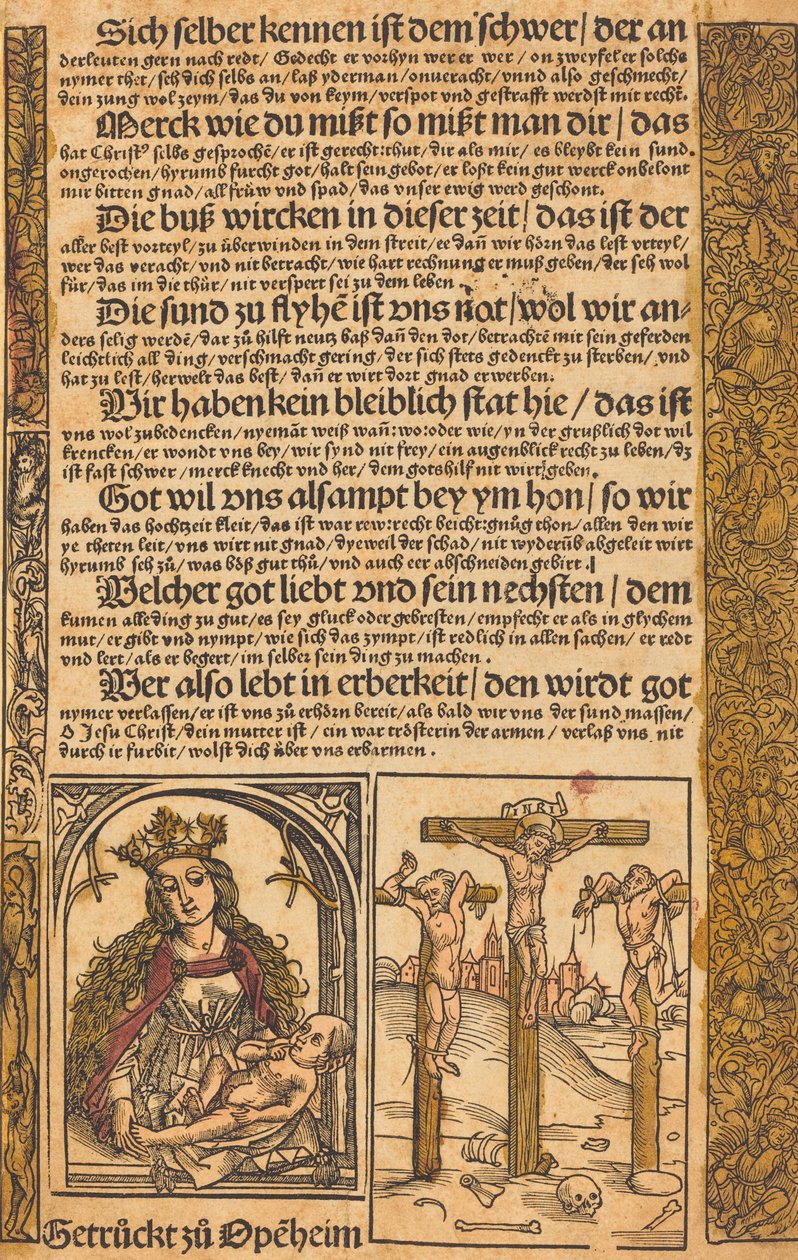 Sich selber kennen ist dem schwer/ der an
derleuten gern nach redt/ Gedecht er vorhyn wer er wer/ on zweyfel er solchs
nymer thet/ seh dich selbs an/ laß yderman/ onueracht/ vnnd also geschmecht/
dein zung wol zeym/ das du von keym/ verspot vnd gestrafft werdst mit recht.
Merck wie du mißt so mißt man dir/ das
hat Christ⁹ selbs gesprochē/ er ist gerecht: thut/ dir als mir/ es bleybt kein sund.
ongerochen/ hyrumb furcht got/ halt sein gebot/ er loßt kein gut werck onbelont
mir bitten gnad/ all fruͤw vnd spad/ das vnser ewig werd geschont.
Die buß wircken in dieser zeit/ das ist der
aller best vorteyl/ zu überwinden in dem streit/ ee dañ wir hörn das lest vrteyl/
wer das veracht/ vnd nit betracht/ wie hart rechnung er muß geben/ der seh wol
für/ das im die thür/ nit verspert sei zu dem leben.
Die sund zu flyhē ist vns not/ wol wir an⸗
ders selig werdē/ dar zů hilft neutz baß dañ den dot/ betrachtē mit sein geferden
leichtlich all ding/ verschmacht gering/ der sich stets gedenckt zu sterben/ vnd
hat zu lest/ her welt das best/ dañ er wirt dort gnad erwerben.
Wir haben kein bleiblich stat hie/ das ist
vns wol zubedencken/ nyemāt weiß wañ: wo: oder wie/ yn der grußlich dot wil
krencken/ er wondt vns bey/ wir synd nit frey/ ein augenblick recht zu leben/ dz
ist fast schwer/ merck knecht vnd her/ dem gots hilf nit wirt geben.
Got wil vns alsampt bey ym hon/ so wir
haben das hochtzeit kleit/ das ist war rew: recht beicht: gnůg thon/ allen den wir
ye theten leit/ vns wirt nit gnad/ dyeweil der schad/ nit wyderūb abgeleit wirt
hyrumb seh zů/ was böß gut thů/ vnd auch eer abschneiden gebirt.
Welcher got liebt vnd sein nechsten/ dem
kumen alle ding zu gut/ es sey gluck oder gebresten/ empfecht er als in glychem
mut/ er gibt vnd nympt/ wie sich das zympt/ ist redlich in allen sachen/ er redt
vnd lert/ als er begert/ im selber sein ding zu machen.
Wer also lebt in erberkeit/ den wirdt got
nymer verlassen/ er ist vns zů erhörn bereit/ als bald wir vns der sund massen/
O Jesu Christ/ dein mutter ist/ ein war trösterin der armen/ verlaß vns nit
durch ir furbit/ wolst dich über vns erbarmen.
INRI
Getrůckt zů Opēheim